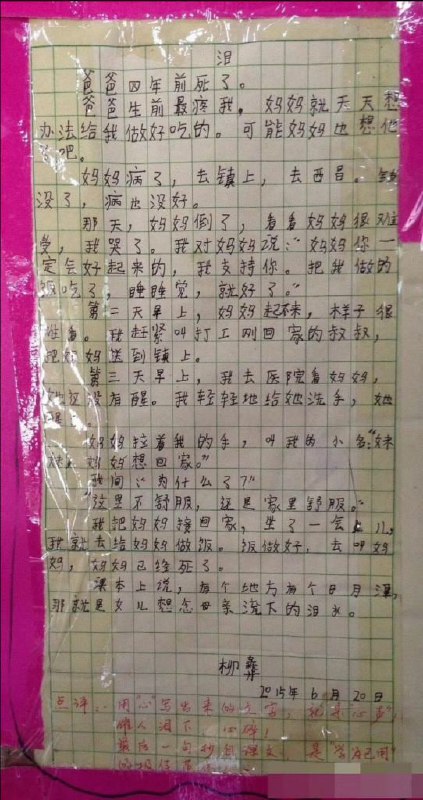 泪
爸爸四年前死了。
爸爸生前最疼我，妈妈就天天想
办法给我做好吃的。可能妈妈也想他
了吧。
妈妈病了，去镇上，去西昌。钱
没了，病也没好。
那天，妈妈倒了，看看妈妈很难
受，我哭了。我对妈妈说：“妈妈你一
定会好起来的，我支持你。把我做的
饭吃了，睡睡觉，就好了。”
第二天早上，妈妈起不来，样子很
难看。我赶紧叫打工刚回家的叔叔，
把妈妈送到镇上。
第三天早上，我去医院看妈妈，
她还没有醒。我轻轻地给她洗手，她
醒了。
妈妈拉着我的手，叫我的小名：“妹
妹，妈妈想回家。”
我问：“为什么了？”
“这里不舒服，还是家里舒服。”
我把妈妈接回家，坐了一会儿，
我就去给妈妈做饭。饭做好，去叫妈
妈，妈妈已经死了。
课本上说，有个地方有个日月潭，
那就是女儿想念母亲流下的泪水。
柳彝
2015年6月20日
点评：用“心”写出来的文字，就是心声，
催人泪下，心碎，
最后一句抄到课文，是“学为己用”
的